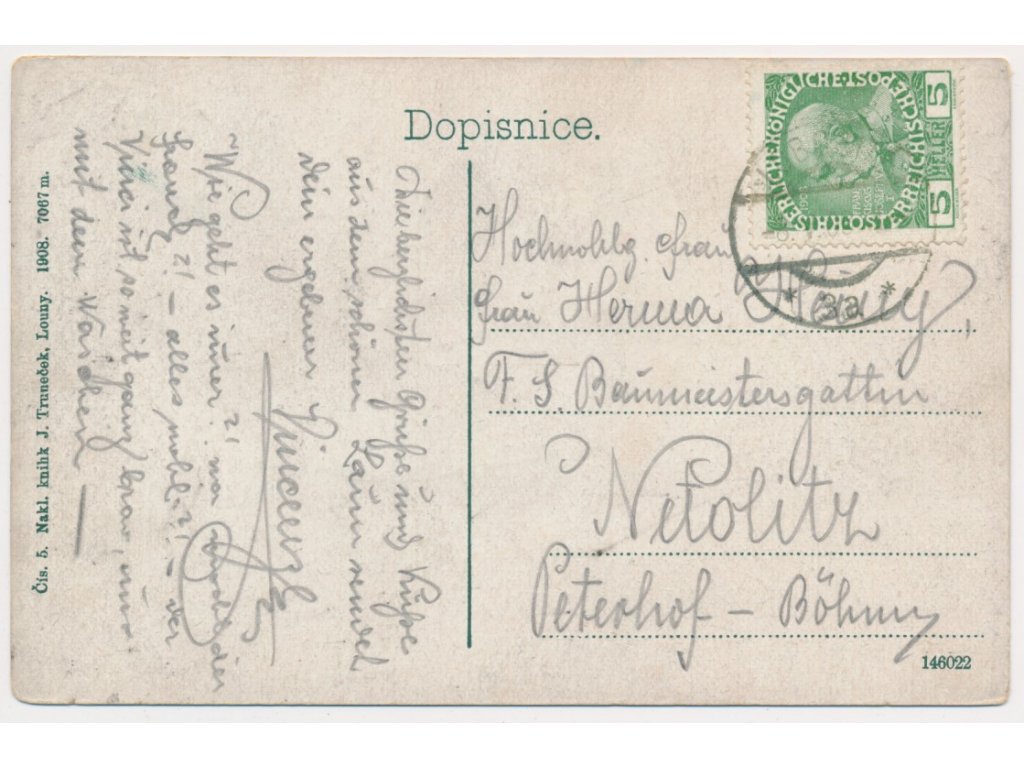 Dopisnice.
KAISERLICHE KÖNIGLICHE ÖSTERREICHISCHE POST
5 HELLER 5
3a
Hochwohlg. Frau
Frau Herma
F. S. Baumeistersgattin
Netolitz
Peterhof – Böhmen
Die herzlichsten Grüße und Küsse
aus dem schönen Laun sendet
Dein ergebener
Wie geht es immer?!
alles wohl?! – der
ist soweit ganz brav, nur
mit dem Waschen –
Čís. 5. Nakl. knihk J. Truneček, Louny. 1908. 7067 m.
146022